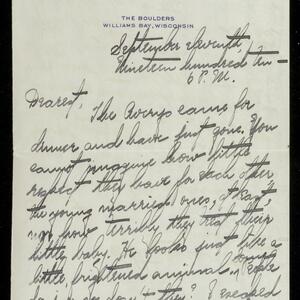 THE BOULDERS
WILLIAMS BAY, WISCONSIN
September eleventh,
Nineteen hundred ten —
6 P.M.
Dearest,
The Averys came for
dinner and have just gone. You
cannot imagine how little
respect they have for each other
the young married ones,
how terribly they treat their
little baby. He looks just like a
little, frightened animal.
don't they? I